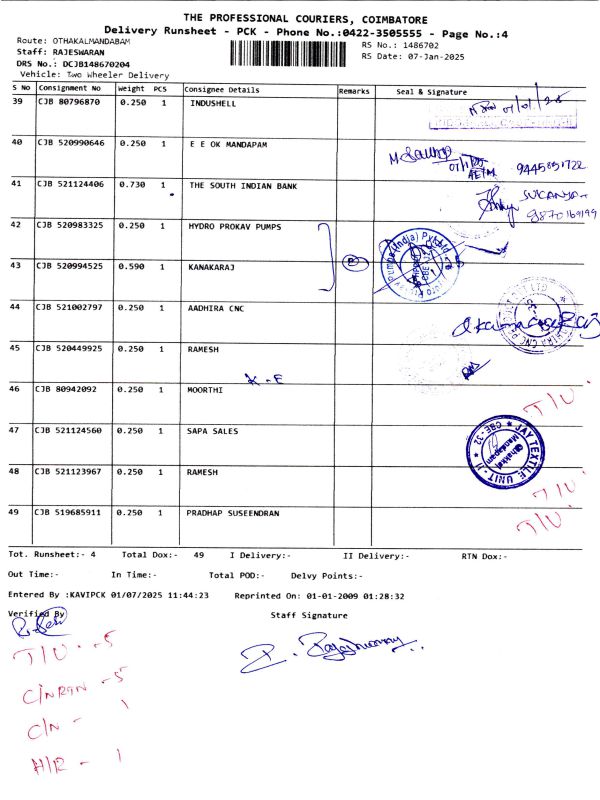 THE PROFESSIONAL COURIERS, COIMBATORE
Delivery Runsheet - PCK - Phone No.:0422-3505555 - Page No.:4
Route: OTHAKALMANDABAM
RS No.: 1486702
Staff: RAJESWARAN
RS Date: 07-Jan-2025
DRS No.: DCJB148670204
Vehicle: Two Wheeler Delivery
S No Consignment No Weight PCS Consignee Details Remarks Seal & Signature
39 CJB 80796870 0.250 1 INDUSHELL
40 CJB 520990646 0.250 1 E E OK MANDAPAM
9445851722
41 CJB 521124406 0.730 1 THE SOUTH INDIAN BANK
SUKANYA
9870169199
42 CJB 520983325 0.250 1 HYDRO PROKAV PUMPS
43 CJB 520994525 0.590 1 KANAKARAJ
44 CJB 521002797 0.250 1 AADHIRA CNC
45 CJB 520449925 0.250 1 RAMESH
K - E
46 CJB 80942092 0.250 1 MOORTHI
T/U.
47 CJB 521124560 0.250 1 SAPA SALES
* JAY TEXTILE UNIT - II * CBE - 32
Othakkal Mandapam
48 CJB 521123967 0.250 1 RAMESH
T/U.
49 CJB 519685911 0.250 1 PRADHAP SUSEENDRAN
T/U.
Tot. Runsheet:- 4 Total Dox:- 49 I Delivery:- II Delivery:- RTN Dox:-
Out Time:- In Time:- Total POD:- Delvy Points:-
Entered By :KAVIPCK 01/07/2025 11:44:23 Reprinted On: 01-01-2009 01:28:32
Verified By Staff Signature
T/U - 5
C/N RAN - 5
C/N - 1
H/R - 1